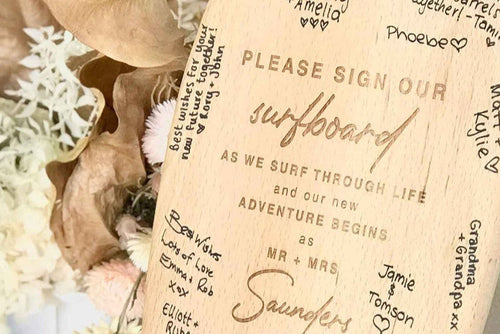 Amelia
together! - Tami
Phoebe
PLEASE SIGN OUR
surfboard
AS WE SURF THROUGH LIFE
and our new
ADVENTURE BEGINS
as
MR + MRS
Saunders
Best wishes for your
new future together!
Rory + John
Kylie
Best Wishes
Lots of Love
Emma + Rob
xox
Elliott +
Jamie
&
Tomson
Grandma
+ Grandpa xx